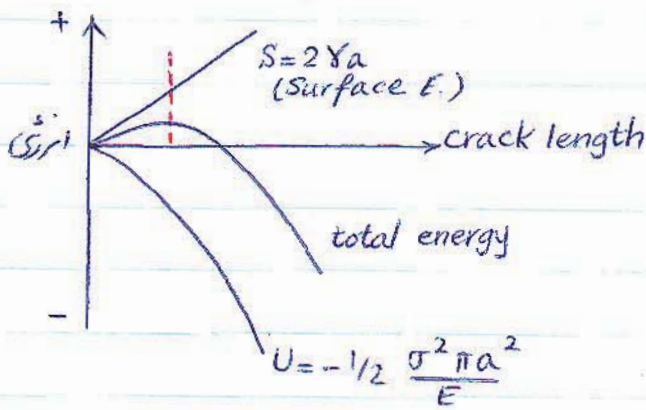 +
S = 2γa
(Surface E.)
انرژی
crack length
total energy
-
U = -1/2 σ²πa²/E